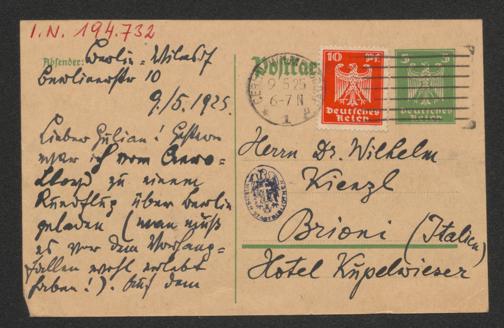 I.N. 194.732
Absender: Berlin-Wilmsdf
Berlinerstr 10
9./5. 1925.
Lieber Julian! Gestern
war ich vom Aero-
Lloyd zu einem
Rundflug über Berlin
geladen (man muß
es vor dem
wohl erlebt
haben!). Auf dem
Postkar
9.5.25
6-7 N
10 Pf
Deutsches
Reich
5 5
Deutsches
Reich
Herrn Dr. Wilhelm
Kienzl
Brioni (Italien)
Hotel Kupelwieser